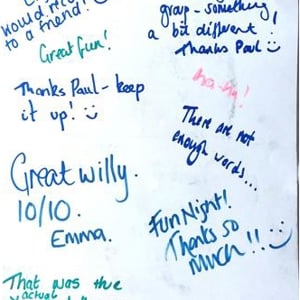 would reco
to a friend!
Great fun!
Thanks Paul - keep
it up!
Great willy.
10/10.
Emma.
That was the
actual
group - something
a bit different!
Thanks Paul
ha-ha!
There are not
enough words...
Fun Night!
Thanks so
much!!